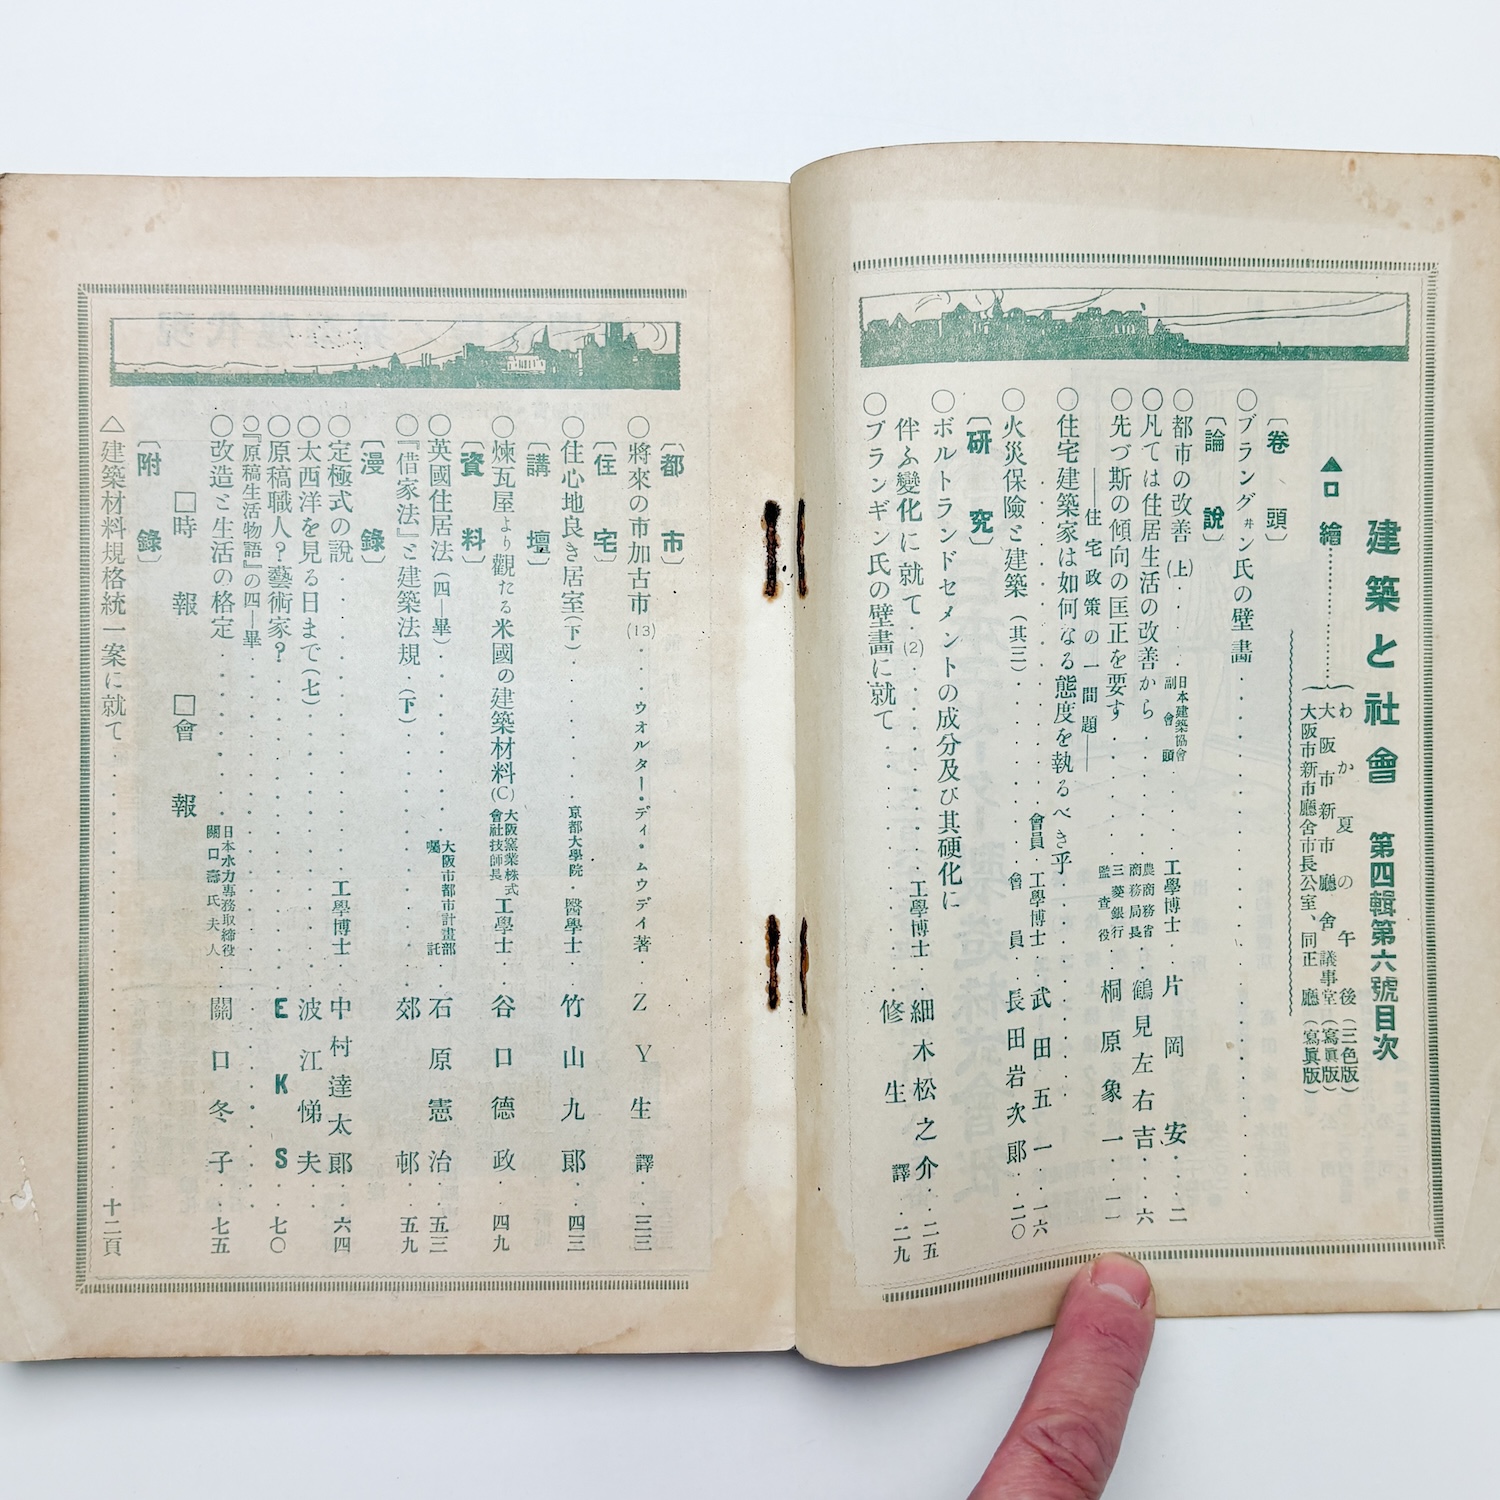 建築と社會　第四輯第六號目次
▲口繪…………
わか夏の午後（三色版）
大阪市新市廳舍議事室（寫眞版）
大阪市新市廳舍市長公室、同正廳（寫眞版）
〔卷　頭〕
○ブラングヰン氏の壁畵
〔論　說〕
○都市の改善（上）日本建築協會副會頭 工學博士 片岡安 二
○凡ては住居生活の改善から 農商務省商務局長 鶴見左右吉 六
○先づ斯の傾向の匡正を要す 三菱銀行監査役 桐原象一 一一
――住宅政策の一問題――
○住宅建築家は如何なる態度を執るべき乎 會員 工學博士 武田五一 一六
○火災保險と建築（其三）會員 長田岩次郎 二〇
〔研　究〕
○ボルトランドセメントの成分及び其硬化に
伴ふ變化に就て（2）工學博士 細木松之介 二五
○ブランギン氏の壁畫に就て 修生譯 二九
〔都　市〕
○將來の市加古市（13）ウオルター・ディ・ムウディ著 ZY生譯 三三
〔住　宅〕
○住心地良き居室（下）京都大學院 醫學士 竹山九郎 四三
〔講　壇〕
○煉瓦屋より觀たる米國の建築材料（C）大阪窯業株式會社技師長 工學士 谷口德政 四九
〔資　料〕
○英國住居法（四―畢）大阪市都市計畫部囑託 石原憲治 五三
○『借家法』と建築法規（下）郊邨 五九
〔漫　錄〕
○定極式の說 工學博士 中村達太郎 六四
○太西洋を見る日まで（七）波江悌夫
○原稿職人？藝術家？ EKS 七〇
○『原稿生活物語』の四―畢
○改造と生活の格定 日本水力專務取締役關口壽氏夫人 關口冬子 七五
□時　報　□會　報
〔附　錄〕
△建築材料規格統一案に就て 十二頁